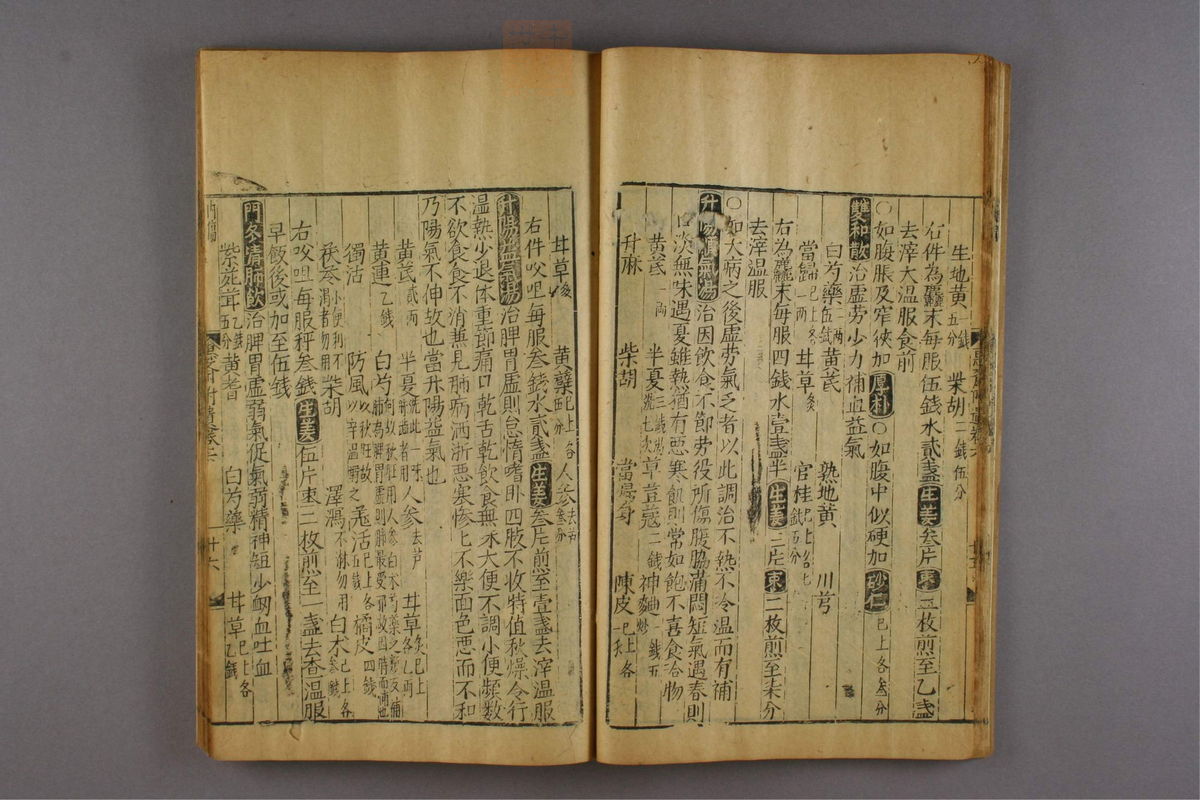 生地黄一錢五分 柴胡二錢伍分
右件為麄末每服伍錢水貳盞生姜叁片棗二枚煎至乙盞
去滓大温服食前
○如腹脹及窄狹加厚朴○如腹中似硬加砂仁已上各叁分
雙和散治虛勞少力補血益氣
白芍藥二兩伍錢 黄芪 熟地黄 川芎
當歸已上各一兩 甘草炙 官桂已上各七錢五分
右為麄末每服四錢水壹盞半生姜三片棗二枚煎至柒分
去滓温服
○如大病之後虛勞氣乏者以此調治不熱不冷温而有補
升陽順氣湯治因飲食不節勞役所傷腹脇滿悶短氣遇春則
口淡無味遇夏雖熱猶有惡寒飢則常如飽不喜食冷物
黄芪一兩 半夏三錢湯洗七次 草荳蔻二錢 神麯炒一錢五
升麻 柴胡 當歸身 陳皮已上各一錢
甘草炙 黄蘗已上各伍分 人參去芦叁分
右件㕮咀每服叁錢水貳盞生姜叁片煎至壹盞去滓温服
升陽益氣湯治脾胃虛則怠惰嗜卧四肢不收特值秋燥令行
温熱少退体重節痛口乾舌乾飲食無味大便不調小便頻数
不欲食食不消兼見肺病洒淅惡寒慘慘不樂面色惡而不和
乃陽氣不伸故也當升陽益氣也
黄芪貳兩 半夏洗此一味脉濇者用 人參去芦 甘草炙已上各乙兩
黄連乙錢 白芍 橘皮四錢
獨活 防風以秋旺故以辛温瀉之 羌活已上各五錢
茯苓小便利不渴者勿用 柴胡 澤瀉不淋勿用 白术已上各叁錢
右㕮咀每服秤叁錢生姜伍片棗二枚煎至一盞去柤温服
早飯後或加至伍錢
門冬清肺飲治脾胃虛弱氣促氣弱精神短少衂血吐血
紫苑茸乙錢五分 黄耆 白芍藥 甘草已上各乙錢
十六